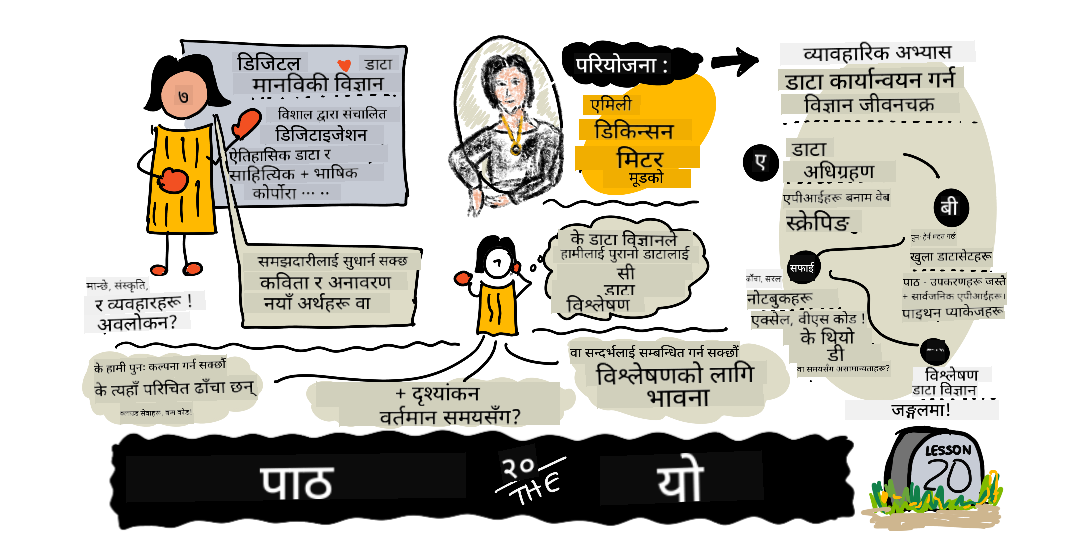 ७
डिजिटल
डाटा
मानविकी विज्ञान
विशाल द्वारा संचालित
डिजिटाइजेशन
ऐतिहासिक डाटा र
साहित्यिक + भाषिक
कोर्पोरा ... ..
समझदारीलाई सुधार्न सक्छ
कविता र अनावरण
नयाँ अर्थहरू वा
मान्छे, संस्कृति,
र व्यवहारहरू !
अवलोकन?
परियोजना :
एमिली
डिकिन्सन
मिटर
मूडको
के डाटा विज्ञानले
हामीलाई पुरानो डाटालाई
सी
डाटा
विश्लेषण
के हामी पुनः कल्पना गर्न सक्छौं
के त्यहाँ परिचित ढाँचा छन्
+ दृश्यांकन
वर्तमान समयसँग?
वा सन्दर्भलाई सम्बन्धित गर्न सक्छौं
विश्लेषणको लागि
भावना
व्यावहारिक अभ्यास
डाटा कार्यान्वयन गर्न
विज्ञान जीवनचक्र
ए
डाटा
अधिग्रहण
एपीआईहरू बनाम वेब
स्क्रेपिङ
बी
खुला डाटासेटहरू
पाठ - उपकरणहरू जस्तै
+ सार्वजनिक एपीआईहरू।
पाइथन प्याकेजहरू
सफाई
ढाँचा, सरल
नोटबुकहरू
एक्सेल, वीएस कोड !
के थियो
डी
वा समयसँग असामान्यताहरू?
विश्लेषण
डाटा विज्ञान
जङ्गलमा!
पाठ
२०
THE
यो
LESSON
20